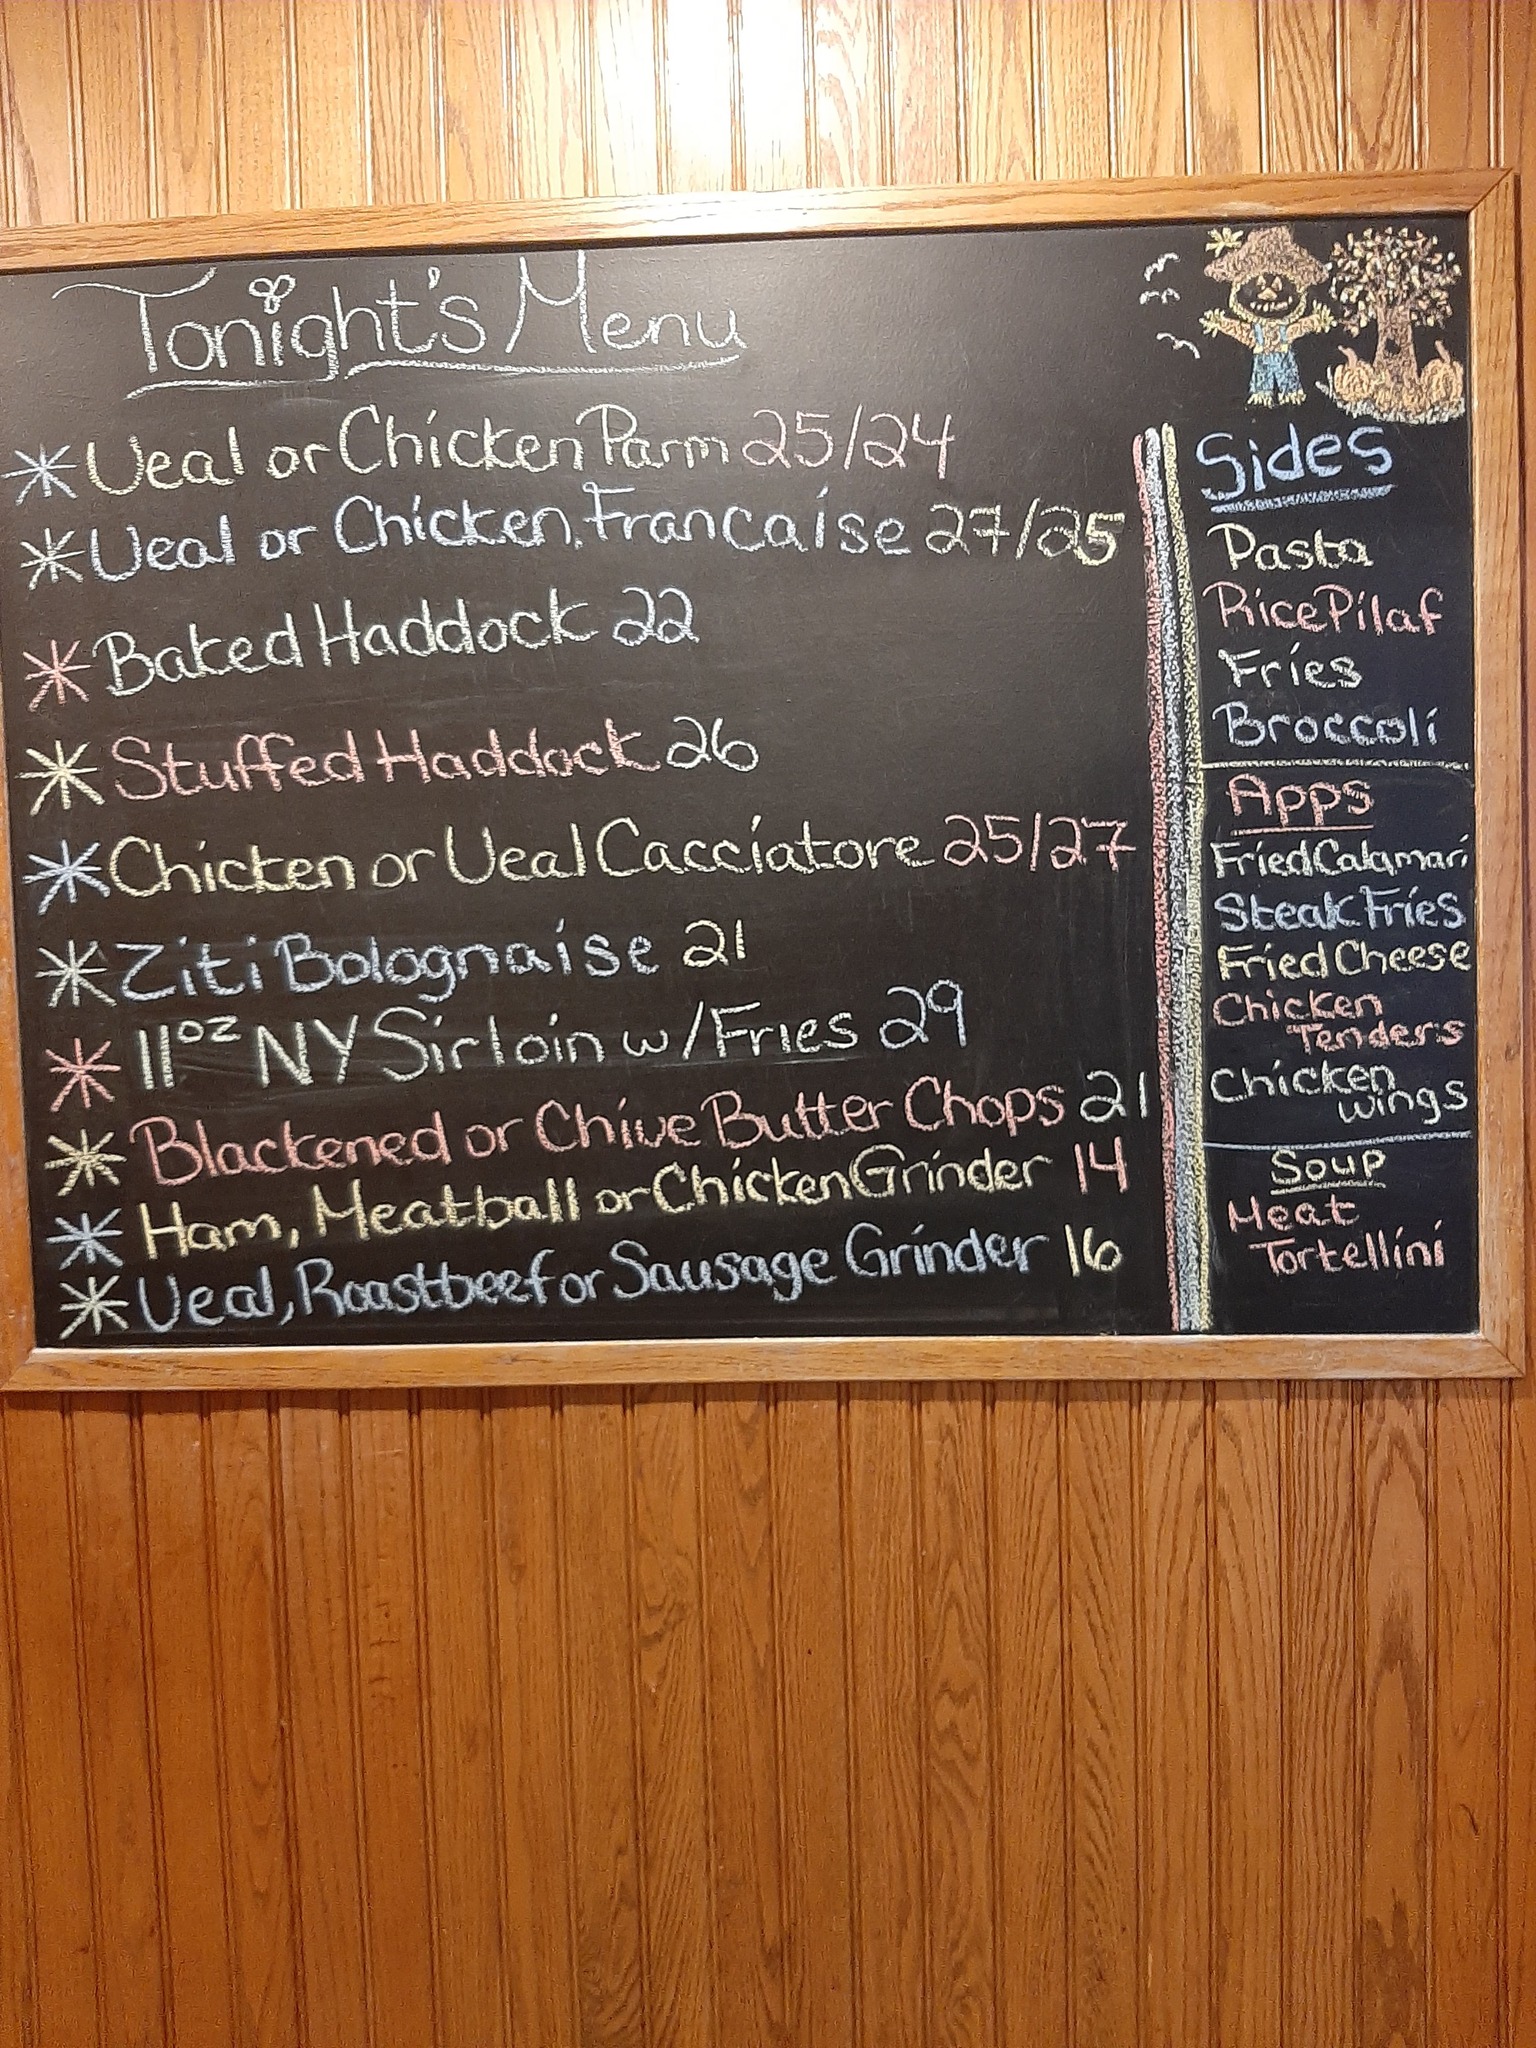 Tonight's Menu
Veal or Chicken Parm 25/24
Veal or Chicken Francaise 27/25
Baked Haddock 22
Stuffed Haddock 26
Chicken or Veal Cacciatore 25/27
Ziti Bolognaise 21
11oz NY Sirloin w/Fries 29
Blackened or Chive Butter Chops 21
Ham, Meatball or Chicken Grinder 14
Veal, Roastbeef or Sausage Grinder 16
Sides
Pasta
Rice Pilaf
Fries
Broccoli
Apps
Fried Calamari
Steak Fries
Fried Cheese
Chicken
Tenders
Chicken
Wings
Soup
Meat
Tortellini